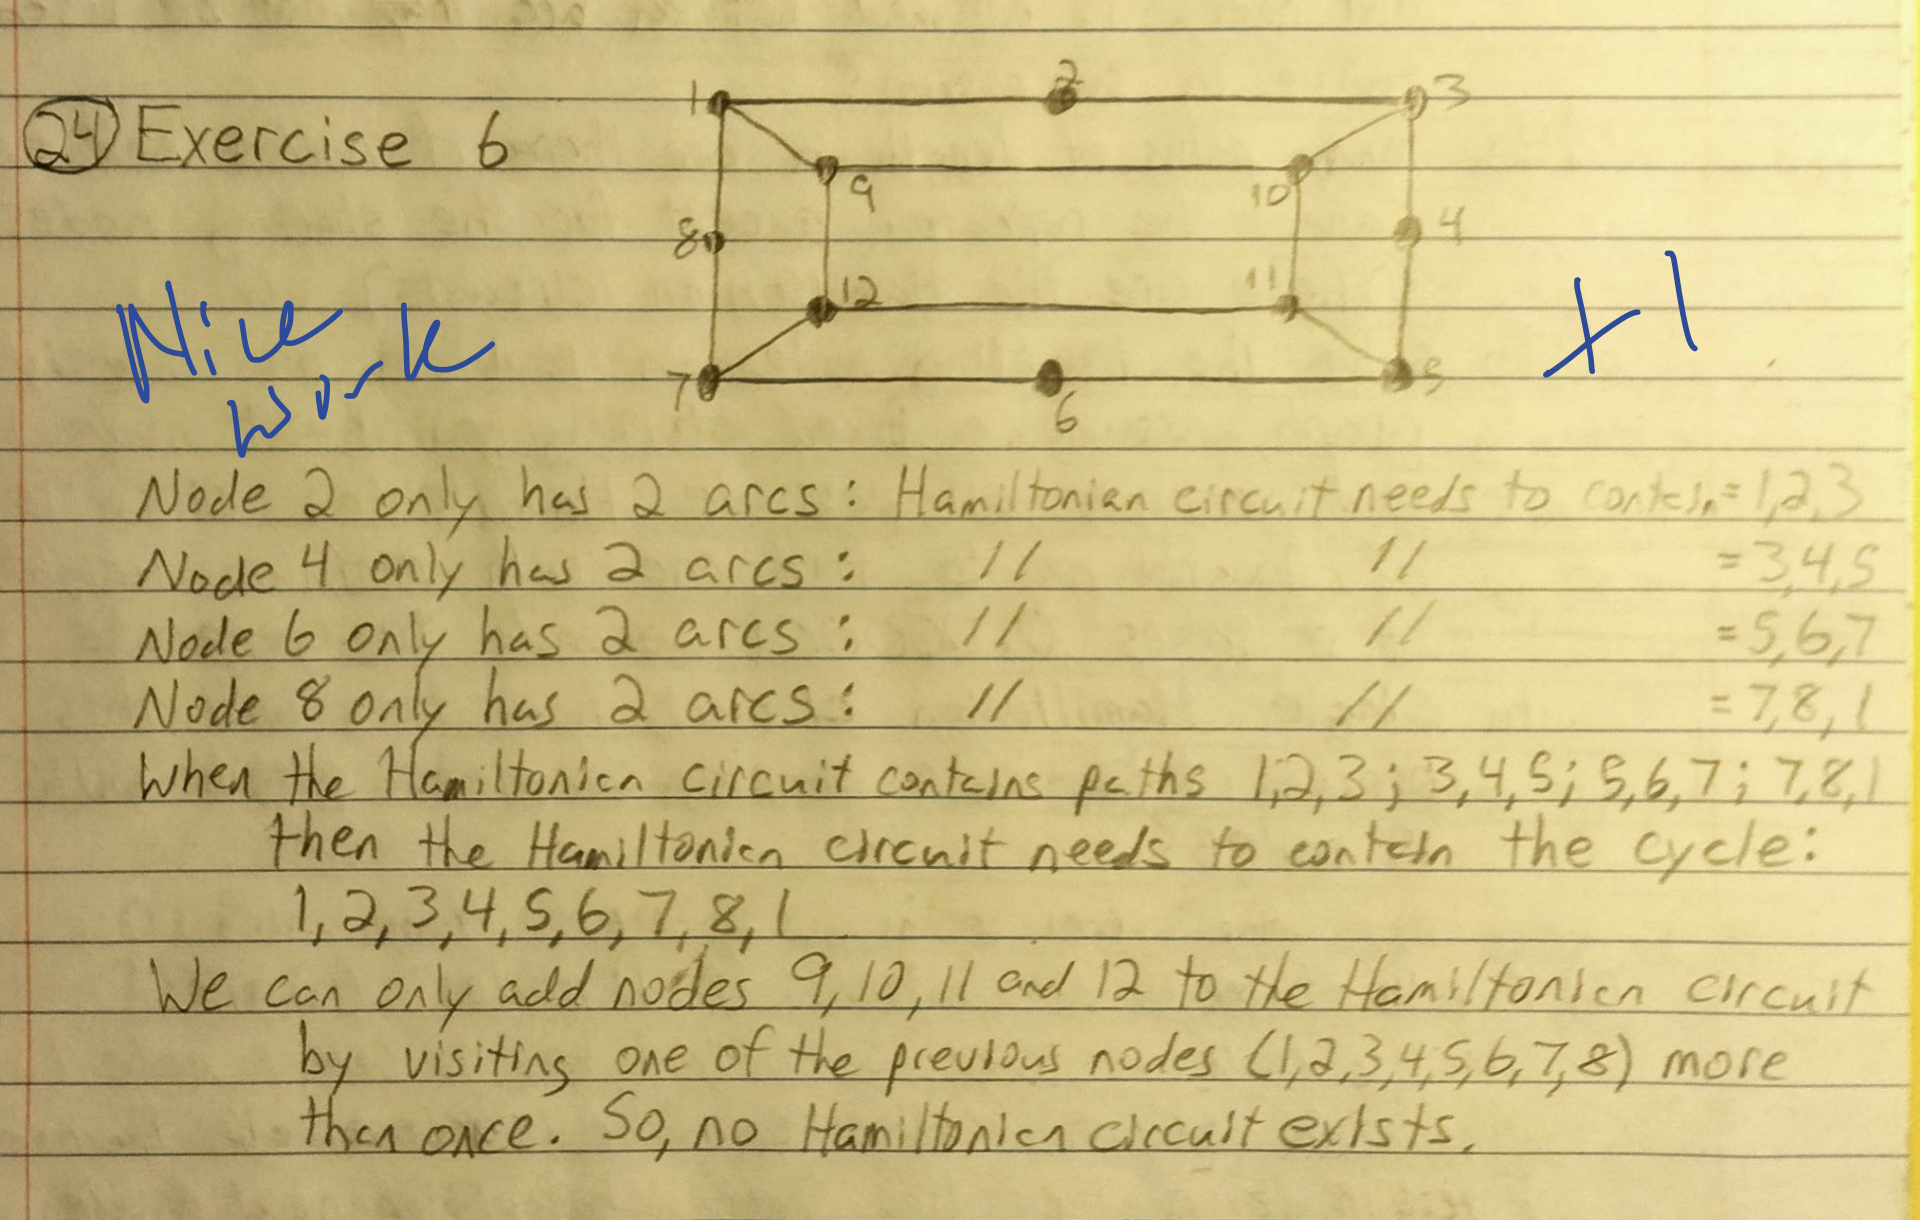 24 Exercise 6
1 2 3
9 10
8 4
12 11
7 6 5
Nice
work
+1
Node 2 only has 2 arcs: Hamiltonian circuit needs to contain = 1,2,3
Node 4 only has 2 arcs: // // = 3,4,5
Node 6 only has 2 arcs: // // = 5,6,7
Node 8 only has 2 arcs: // // = 7,8,1
When the Hamiltonian circuit contains paths 1,2,3; 3,4,5; 5,6,7; 7,8,1
then the Hamiltonian circuit needs to contain the cycle:
1,2,3,4,5,6,7,8,1
We can only add nodes 9,10,11 and 12 to the Hamiltonian circuit
by visiting one of the previous nodes (1,2,3,4,5,6,7,8) more
than once. So, no Hamiltonian circuit exists.